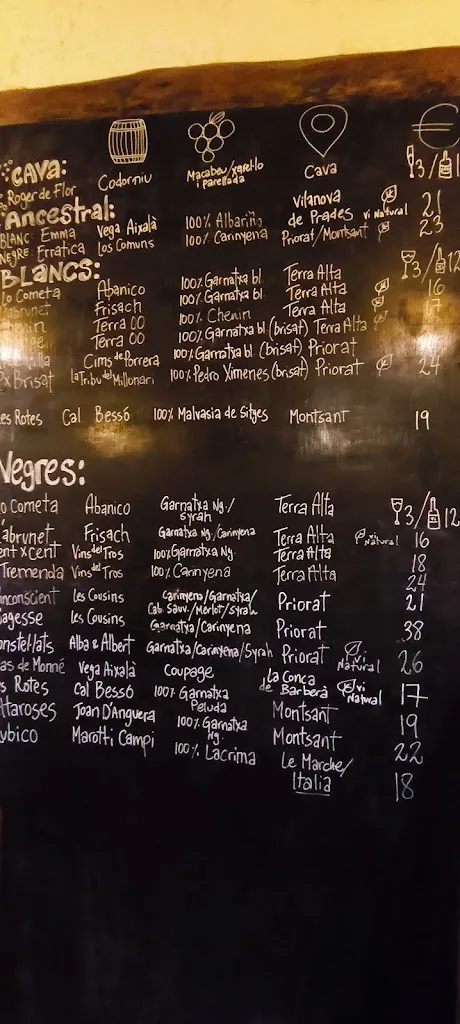 CAVA:
Roger de Flor Codorniu Macabeu/xarel·lo i parellada Cava 3/
Ancestral:
BLANC Emma Vega Aixalà 100% Albariño Vilanova de Prades vi Natural 21
NEGRE: Erratica Los Comuns 100% Carinyena Priorat/Montsant 23
BLANCS: 3/12
Lo Cometa Abanico 100% Garnatxa bl. Terra Alta 16
Frisach 100% Garnatxa bl. Terra Alta
Terra 00 100% Chenin Terra Alta
Terra 00 100% Garnatxa bl (brisat) Terra Alta
Cims de Porrera 100% Garnatxa bl (brisat) Priorat
Px Brisat La Tribu del Millonari 100% Pedro Ximenes (brisat) Priorat 24
es Rotes Cal Bessó 100% Malvasia de Sitges Montsant 19
Negres:
o Cometa Abanico Garnatxa Ng./ syrah Terra Alta 3/12
abrunet Frisach Garnatxa Ng./Carinyena Terra Alta vi Natural 16
ent x cent Vins del Tros 100% Garnatxa Ng. Terra Alta 18
Tremenda Vins del Tros 100% Carinyena Terra Alta 24
inconscient les Cousins Carinyena/Garnatxa/ Cab. Sauv./Merlot/Syrah Priorat 21
agesse les Cousins Garnatxa/Carinyena Priorat 38
onstel·lats Alba & Albert Garnatxa/Carinyena/Syrah Priorat vi Natural 26
as de Monné Vega Aixalà Coupage La Conca de Barberà vi Natural 17
s Rotes Cal Bessó 100% Garnatxa Peluda Montsant 19
ltaroses Joan D'Anguera 100% Garnatxa Ng. Montsant 22
ubico Marotti Campi 100% Lacrima Le Marche/ Italia 18